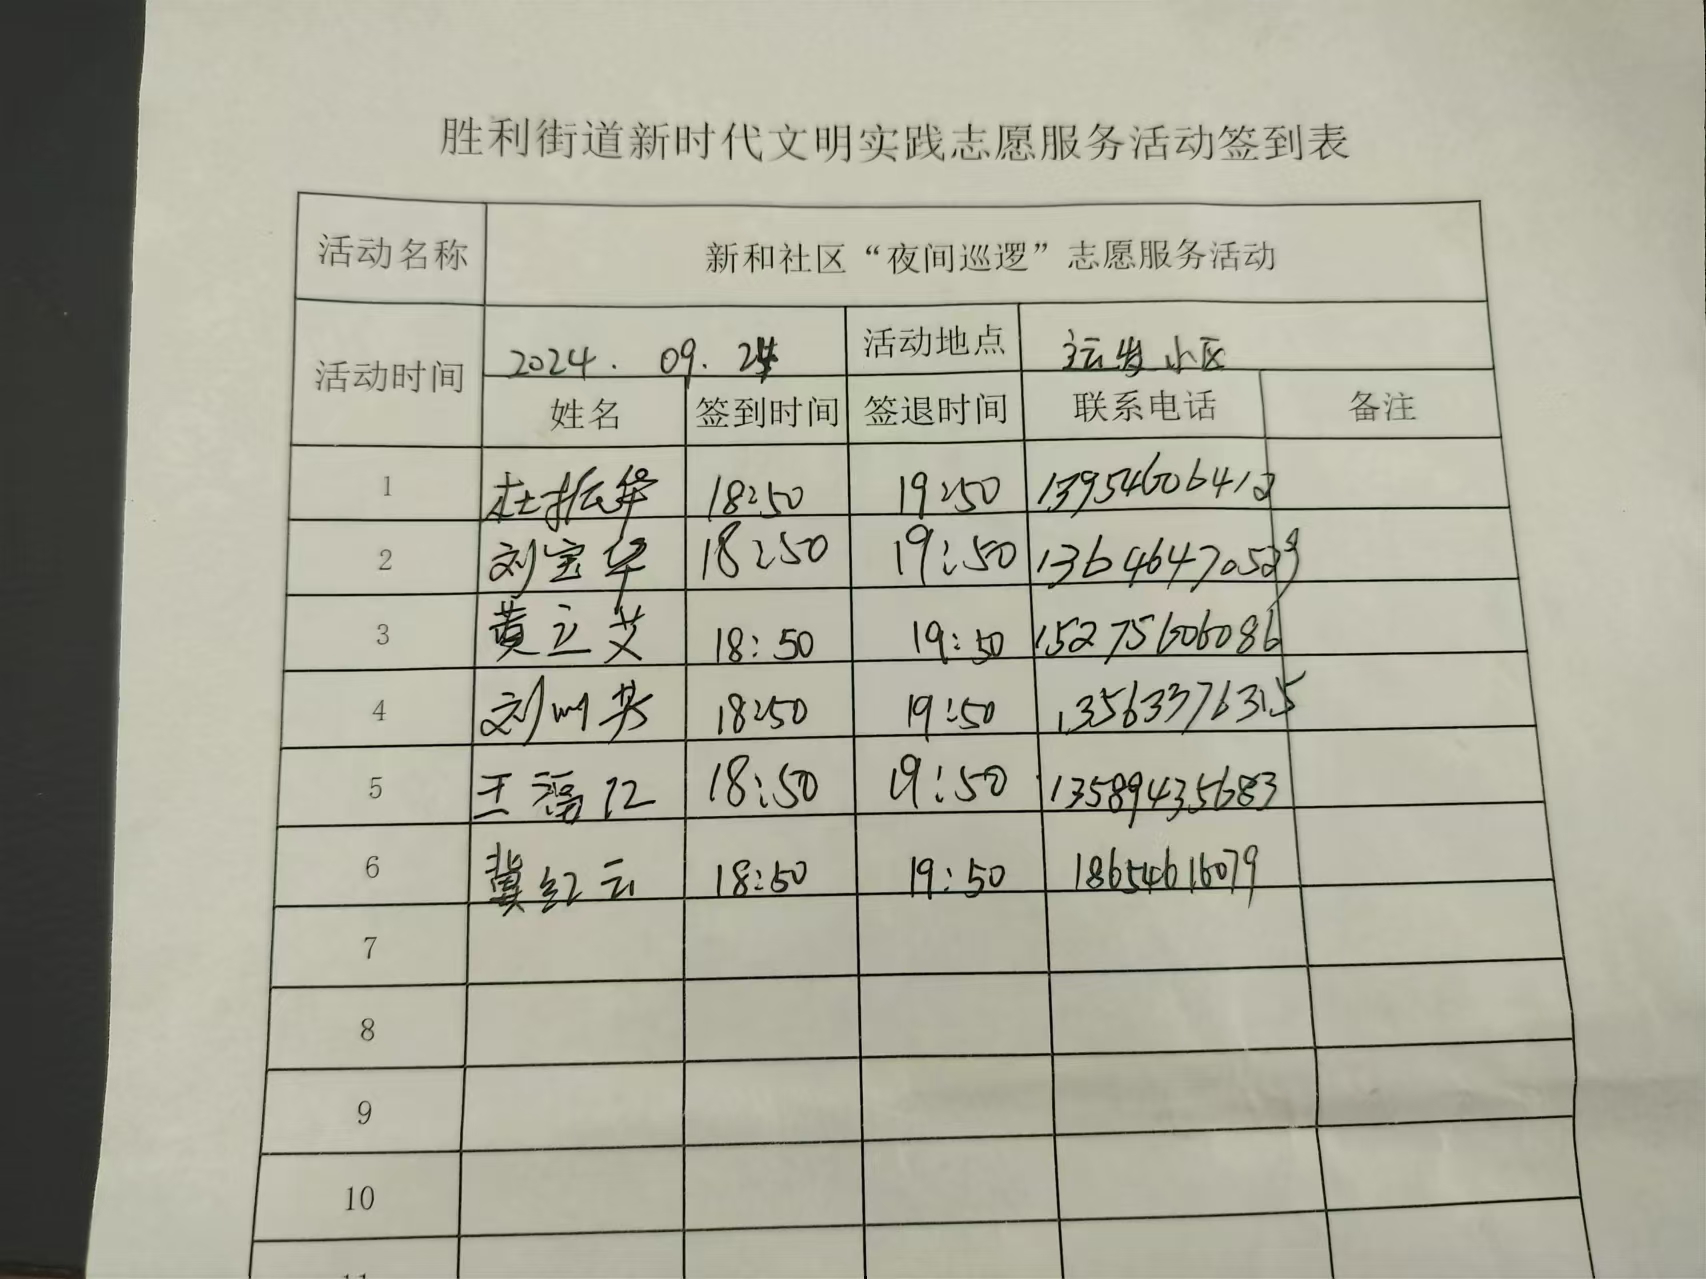 胜利街道新时代文明实践志愿服务活动签到表
活动名称 新和社区“夜间巡逻”志愿服务活动
活动时间 2024.09.24 活动地点 运发小区
姓名 签到时间 签退时间 联系电话 备注
1 杜振华 18:50 19:50 13954606412
2 刘宝华 18:50 19:50 13646470529
3 黄立艾 18:50 19:50 15275606086
4 刘 18:50 19:50 13563376315
5 王福江 18:50 19:50 13589435683
6 冀红云 18:50 19:50 18654616079
7
8
9
10
11